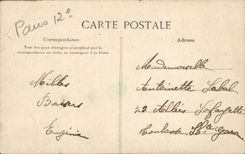 Paris 12e
CARTE POSTALE
Correspondance
Tous les pays étrangers n'acceptent pas la
correspondance au recto, se renseigner à la Poste
Adresse
Milles
Baisers
Eugénie
Mademoiselle
Antoinette Labal
22 Allées Lafayette
Toulouse Hte Gare